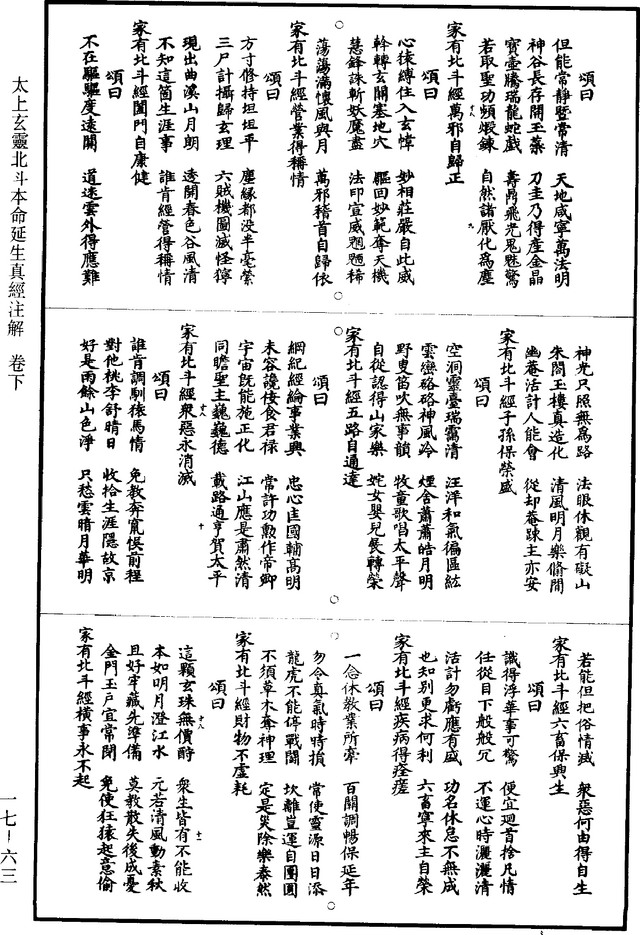 頌曰
但能常靜暨常清　天地咸寧萬法明
神谷長存開玉蘂　刀圭乃得產金晶
寶臺騰瑞龍蛇戲　壽鼎飛光鬼魅驚
若取聖功頻煅鍊　自然諸厭化爲塵
家有北斗經萬邪自歸正
頌曰
心猿縛住入玄幃　妙相莊嚴自此威
斡轉玄關塞地穴　驅回妙範奪天機
慧鋒誅斬妖魔盡　法印宣威魍魎稀
蕩蕩滿懷風與月　萬邪稽首自歸依
家有北斗經營業得稱情
頌曰
方寸修持坦坦平　塵緣都没半毫縈
三尸計攝歸玄理　六賊機圖滅怪獰
現出曲溪山月朗　透開春色谷風清
不知這箇生涯事　誰肯經營得稱情
家有北斗經闔門自康健
頌曰
不在驅驅度遠關　道迷雲外得應難
神光只照無爲路　法眼休觀有礙山
朱閣玉樓真造化　清風明月樂脩間
幽菴活計人能會　從却菴疎主亦安
家有北斗經子孫保榮盛
頌曰
空洞靈臺瑞靄清　汪洋和氣徧區紘
雲巒硌硌神風冷　煙舍蕭蕭皓月明
野叟笛吹無事韻　牧童歌唱太平聲
自從認得山家樂　姹女嬰兒長轉榮
家有北斗經五路自通達
頌曰
綱紀經綸事業興　忠心匡國輔高明
未容讒佞食君禄　常許功勳作帝卿
宇宙既能施正化　江山應是肅然清
同瞻聖主巍巍德　載路通亨賀太平
家有北斗經衆惡永消滅
頌曰
誰肯調馴猿馬情　免教奔竄悮前程
對他桃李舒晴日　收拾生涯隱故京
好是雨餘山色淨　只愁雲暗月華明
若能但把俗情滅　衆惡何由得自生
家有北斗經六畜保興生
頌曰
識得浮華事可驚　便宜廻首捨凡情
任從目下般般冗　不運心時灑灑清
活計勿虧應有盛　功名休息不無成
也知別更求何利　六畜寧來主自榮
家有北斗經疾病得痊瘥
頌曰
一念休教業所牽　百關調暢保延年
勿令真氣時時損　常使靈源日日添
龍虎不能停戰鬭　坎離豈運自團圓
不須草木奪神理　定是災除樂泰然
家有北斗經財物不虛耗
頌曰
這顆玄珠無價酧　衆生皆有不能收
本如明月澄江水　元若清風動素秋
且好牢藏先準備　莫教散失後成憂
金門玉戶宜常閉　免使狂猿起意偷
家有北斗經橫事永不起
太上玄靈北斗本命延生真經注解　卷下
一七－六三